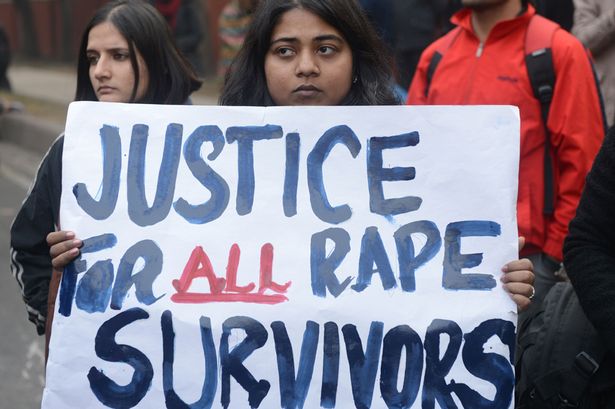 JUSTICE
FOR ALL RAPE
SURVIVORS